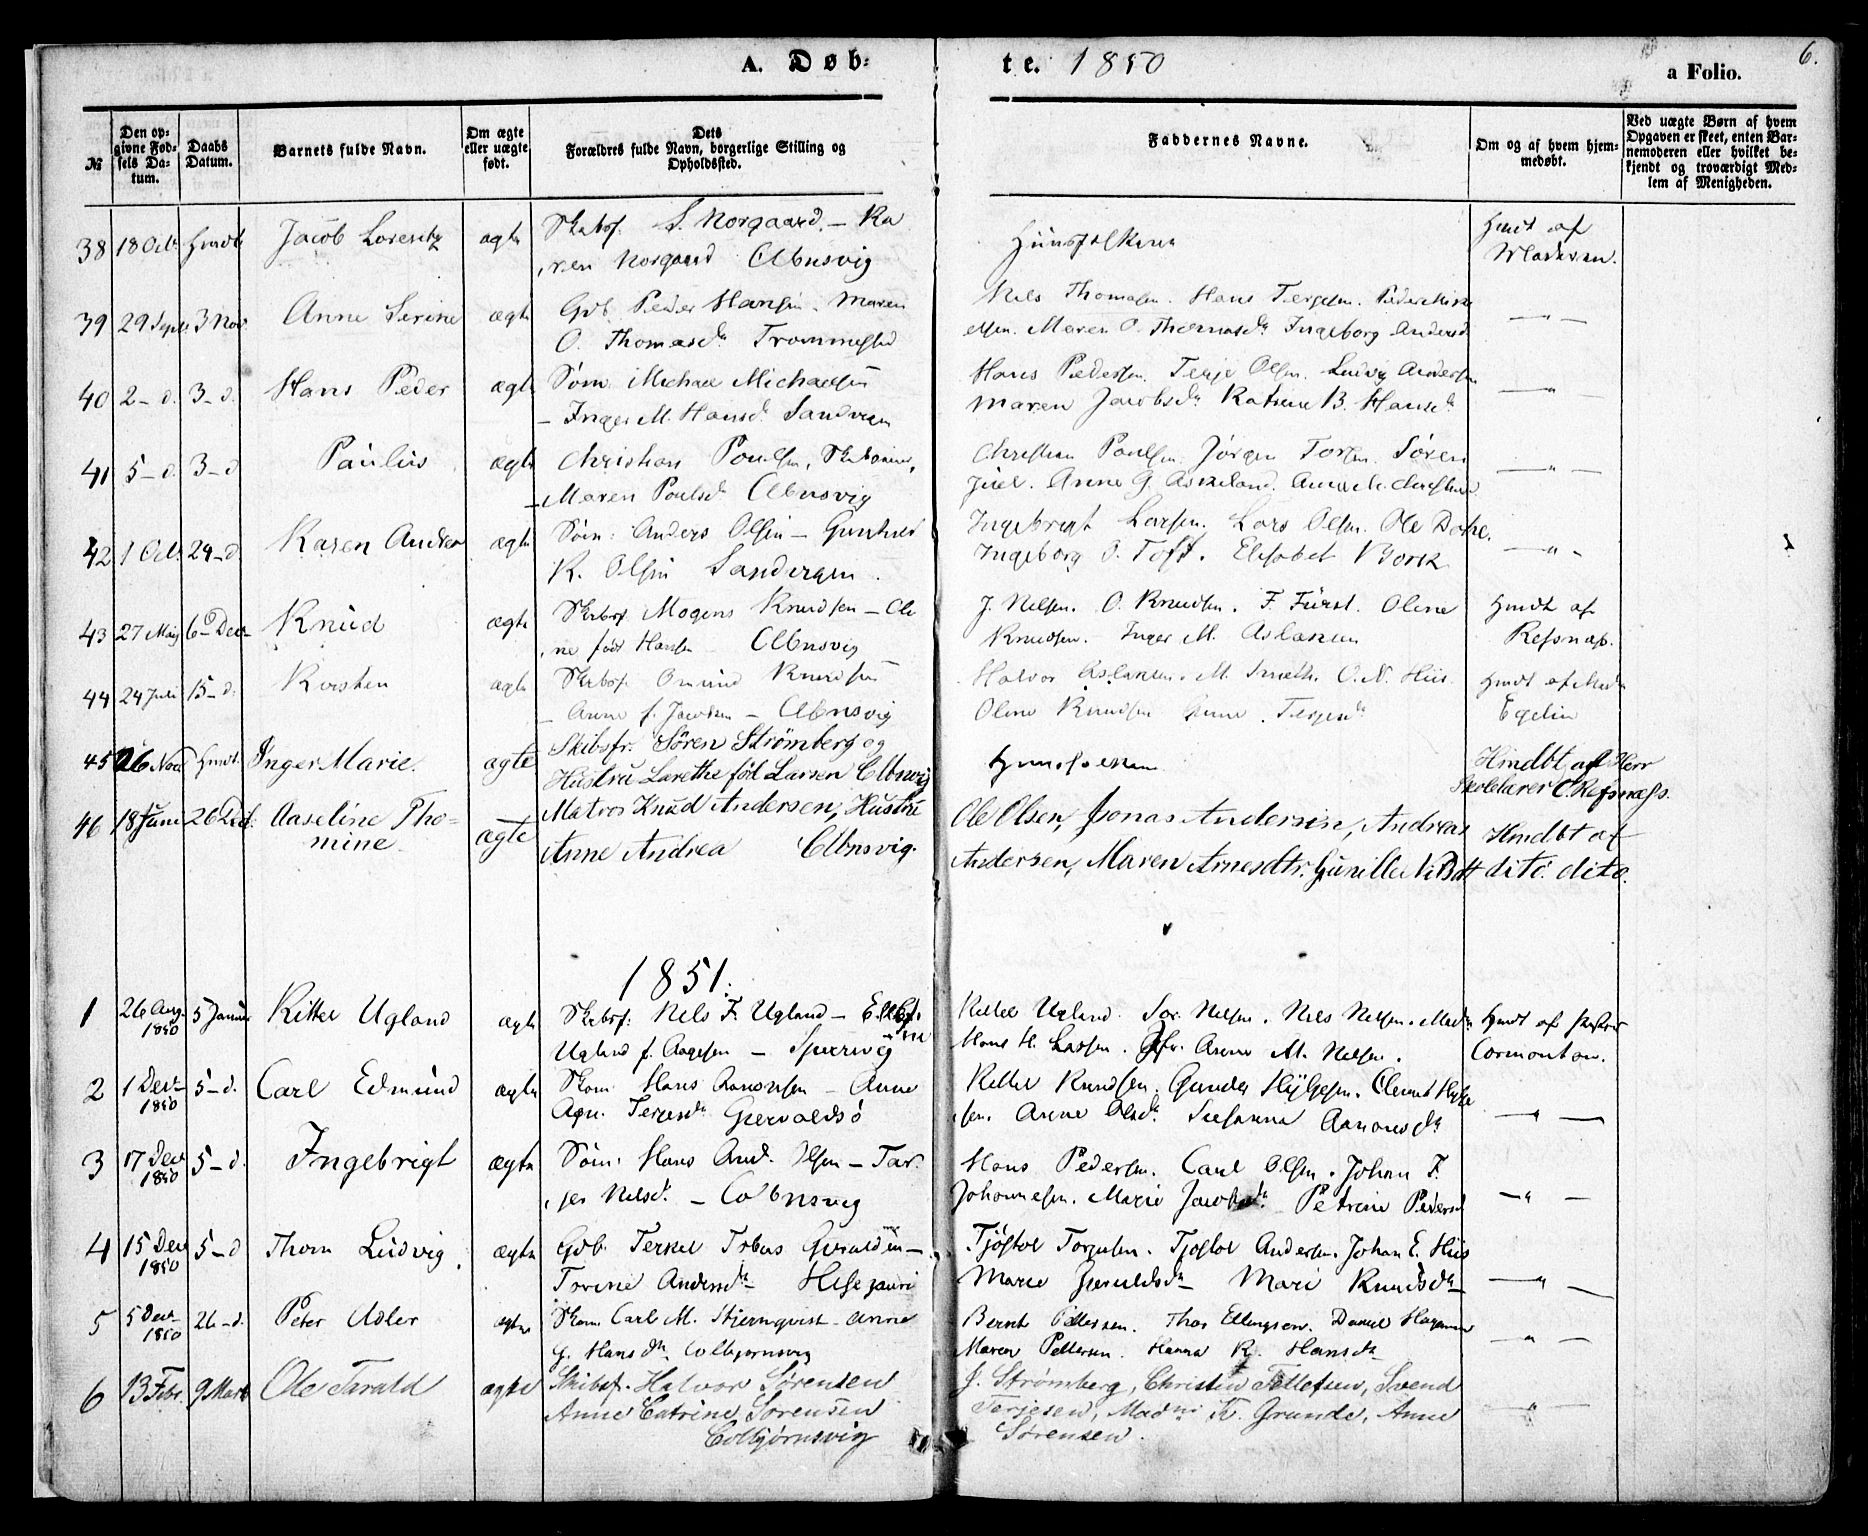 A. Døb-
te. 1850
a Folio.
6.
№
Den op-
givne Fød-
sels Da-
tum.
Daabs
Datum.
Barnets fulde Navn.
Om ægte
eller uægte
født.
Dets
Forældres fulde Navn, borgerlige Stilling og
Opholdssted.
Faddernes Navne.
Om og af hvem hjem-
medøbt.
Ved uægte Børn af hvem
Opgaven er skeet, enten Bar-
nemoderen eller hvilket be-
kjendt og troværdigt Med-
lem af Menigheden.
38 18 Octr hmdt Jacob Lorentz ægte Skibsf. S. Norgaard. – Ka
ren Norgaard Colbnsvig
hmdt af
39 29 Septr 3 Nov. Anne Serine ægte Gdb. Peder Hansen. Maren
O. Thomasd. Trommestad
Niels Thomasen. Hans Terjesen. Peder
Maren O. Thomasdr Ingeborg Andersd
— " —
40 2 – d. 3 – d. Hans Peder ægte Søm. Michael Michaelsen
– Inger M. Hansd.
Hans Pedersen. Terje Olsen. Ludvig Andersen
Maren Jacobsdr Katrine B. Hansdr
— " —
41 5 – d. 3 – d Paulus ægte Christian Poulsen, Skibtømmer,
– Maren Poulsd. Colbnsvig
Christian Poulsen. Jørgen Søren
Juel. Anne G. Askeland.
— " —
42 1 Oct. 29 – d. Karen Andrea ægte Søm: Anders Olsen –
K. Olsen
Ingebregt Larsen. Lars Olsen. Ole
Ingeborg O. Toft. Elisabet Bork
— " —
43 27 Maj 6 – Decr Knud ægte Skibsf Mogens Knudsen – Oli
ne født Hansen Colbnsvig
J. Nelsen. O. Knudsen. F. Fürst. Oline
Knudsen. Inger M. Aslaksen
hmdt af
Refsnæs.
44 24 Juli 15 – d. Kirsten ægte Skibsf. Omund Knudsen
– Anne f. Jacobsen – Colbnsvig
Halvor Aslaksen. M. Smith. O. N. Hiis.
Oline Knudsen Anne Terjesdr
hmdt af Mad
Egelin
45 26 Nov hmdt. Inger Marie. ægte Skibsfr. Sören Strömberg og
Hustru Larethe föd Larsen Colbnsvig
Hmdbt af Herr
Skolelærer C. Refsnæs.
46 18 Juni 26 Dec. Aaseline Tho-
mine. ægte Matros Knud Andersen, Hustru
Anne Andrea Colbnsvig.
Ole Olsen, Jonas Andersen, Andreas
Andersen, Maren Arnesdtr. Gunille
Hmdbt af
dito. dito.
1851.
1 26 Aug.
1850 5 Januar Kittel Ugland ægte Skibsf: Nels F. Ugland –
Ugland f. Aagesen –
Kittel Ugland. Nelsen. Nils Nelsen. Mad
Hans H. Larsen. Anne M. Nelsen.
hmdt af
Cormonton.
2 1 Decr
1850 5 – d. Carl Edmund ægte Skom. Hans Aanonsen – Anne
Agn. Terjesdr Gjervoldsö
Kittel Knudsen. Gunder
sen. Anne Olsdr Susanna Aanonsdr
— " —
3 17 Dec
1850 5 – d. Ingebrigt ægte Søm. Hans And. Olsen – Tar-
jer Nelsd. – Colbnsvig
Hans Pedersen. Carl Olsen. Johan F.
Johannesen. Marie Jacobsdr Petrine Pedersd
— " —
4 15 Dec
1850 5 – d Thom Ludvig. ægte Gdb. Terkel Gjeruldsen –
Trine Andersdr
Tjöstol Torjusen. Tjöstol Andersen. Johan E. Hiis
Marie Gjeruldsdr Mari Knudsdr
— " —
5 5 Decr
1850 26 – d. Peter Adler ægte Skom. Carl M. Stjernqvist – Anne
G. Hansdr Colbjørnsvig
Bernt Pettersen. Thor Ellingsen. Daniel
Maren Pettersen. Hanna K. Hansdr
— " —
6 13 Febr. 9 Marts Ole Tarald ægte Skibsf. Halvor Sørensen
Anne Catrine Sørensen
Colbjørnsvig
J. Strømberg, Christen Tellefsen, Svend
Terjesen, K. Grunde, Anne
Sørensen.
— " —